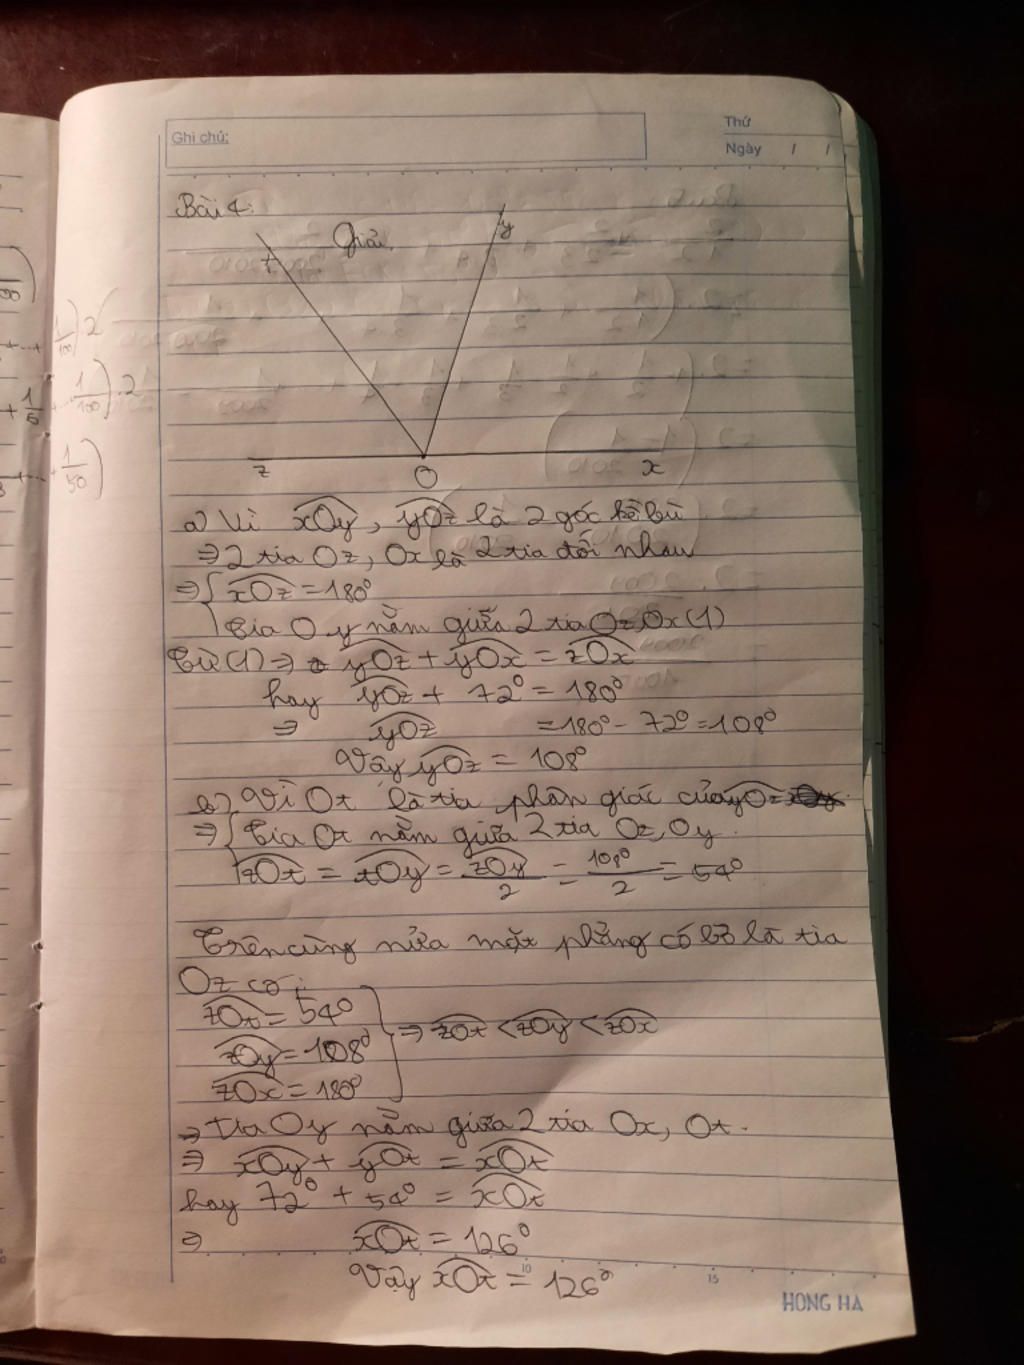 Ghi chú:
Thứ
Ngày / /
Bài 4:
Giải.
t
y
z
O
x
a) Vì xOy, yOz là 2 góc kề bù
⇒ 2 tia Oz, Ox là 2 tia đối nhau
⇒ { xOz = 180°
Tia Oy nằm giữa 2 tia Oz, Ox (1)
Từ (1) ⇒ yOz + yOx = zOx
hay yOz + 72° = 180°
⇒ yOz = 180° - 72° = 108°
Vậy yOz = 108°
b) Vì Ot là tia phân giác của yOz
⇒ { Tia Ot nằm giữa 2 tia Oz, Oy.
zOt = tOy = zOy/2 = 108°/2 = 54°
Trên cùng nửa mặt phẳng có bờ là tia
Oz có:
zOt = 54°
zOy = 108°
} ⇒ zOt < zOy < zOx
zOx = 180°
⇒ tia Oy nằm giữa 2 tia Ox, Ot.
⇒ xOy + yOt = xOt
hay 72° + 54° = xOt
⇒ xOt = 126°
Vậy xOt = 126°
10
15
HONG HA